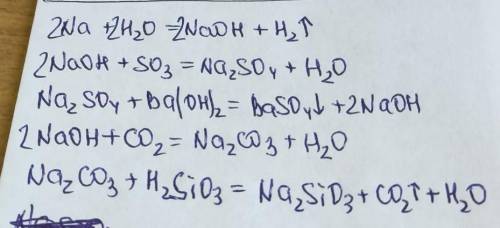 2Na + 2H₂O = 2NaOH + H₂↑
2NaOH + SO₃ = Na₂SO₄ + H₂O
Na₂SO₄ + Ba(OH)₂ = BaSO₄↓ + 2NaOH
2NaOH + CO₂ = Na₂CO₃ + H₂O
Na₂CO₃ + H₂SiO₃ = Na₂SiO₃ + CO₂↑ + H₂O